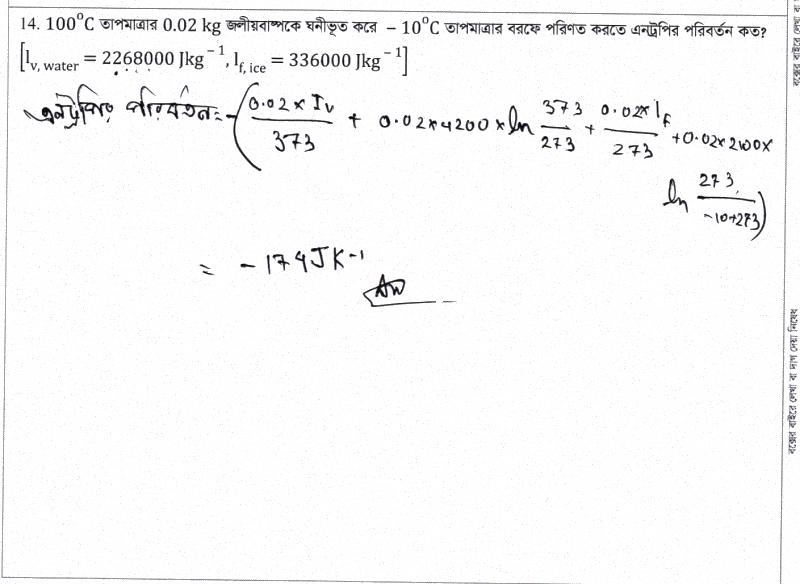 14. 100°C তাপমাত্রার 0.02 kg জলীয়বাষ্পকে ঘনীভূত করে – 10°C তাপমাত্রার বরফে পরিণত করতে এনট্রপির পরিবর্তন কত?
[l_v, water = 2268000 Jkg⁻¹, l_f, ice = 336000 Jkg⁻¹]
এনট্রপির পরিবর্তন = -(0.02 × I_v / 373 + 0.02×4200×ln 373/273 + 0.02×l_f / 273 + 0.02×2100×
ln 273 / -10+273)
= -174 JK⁻¹
Ans
বক্সের বাইরে লেখা বা দাগ দেয়া নিষেধ